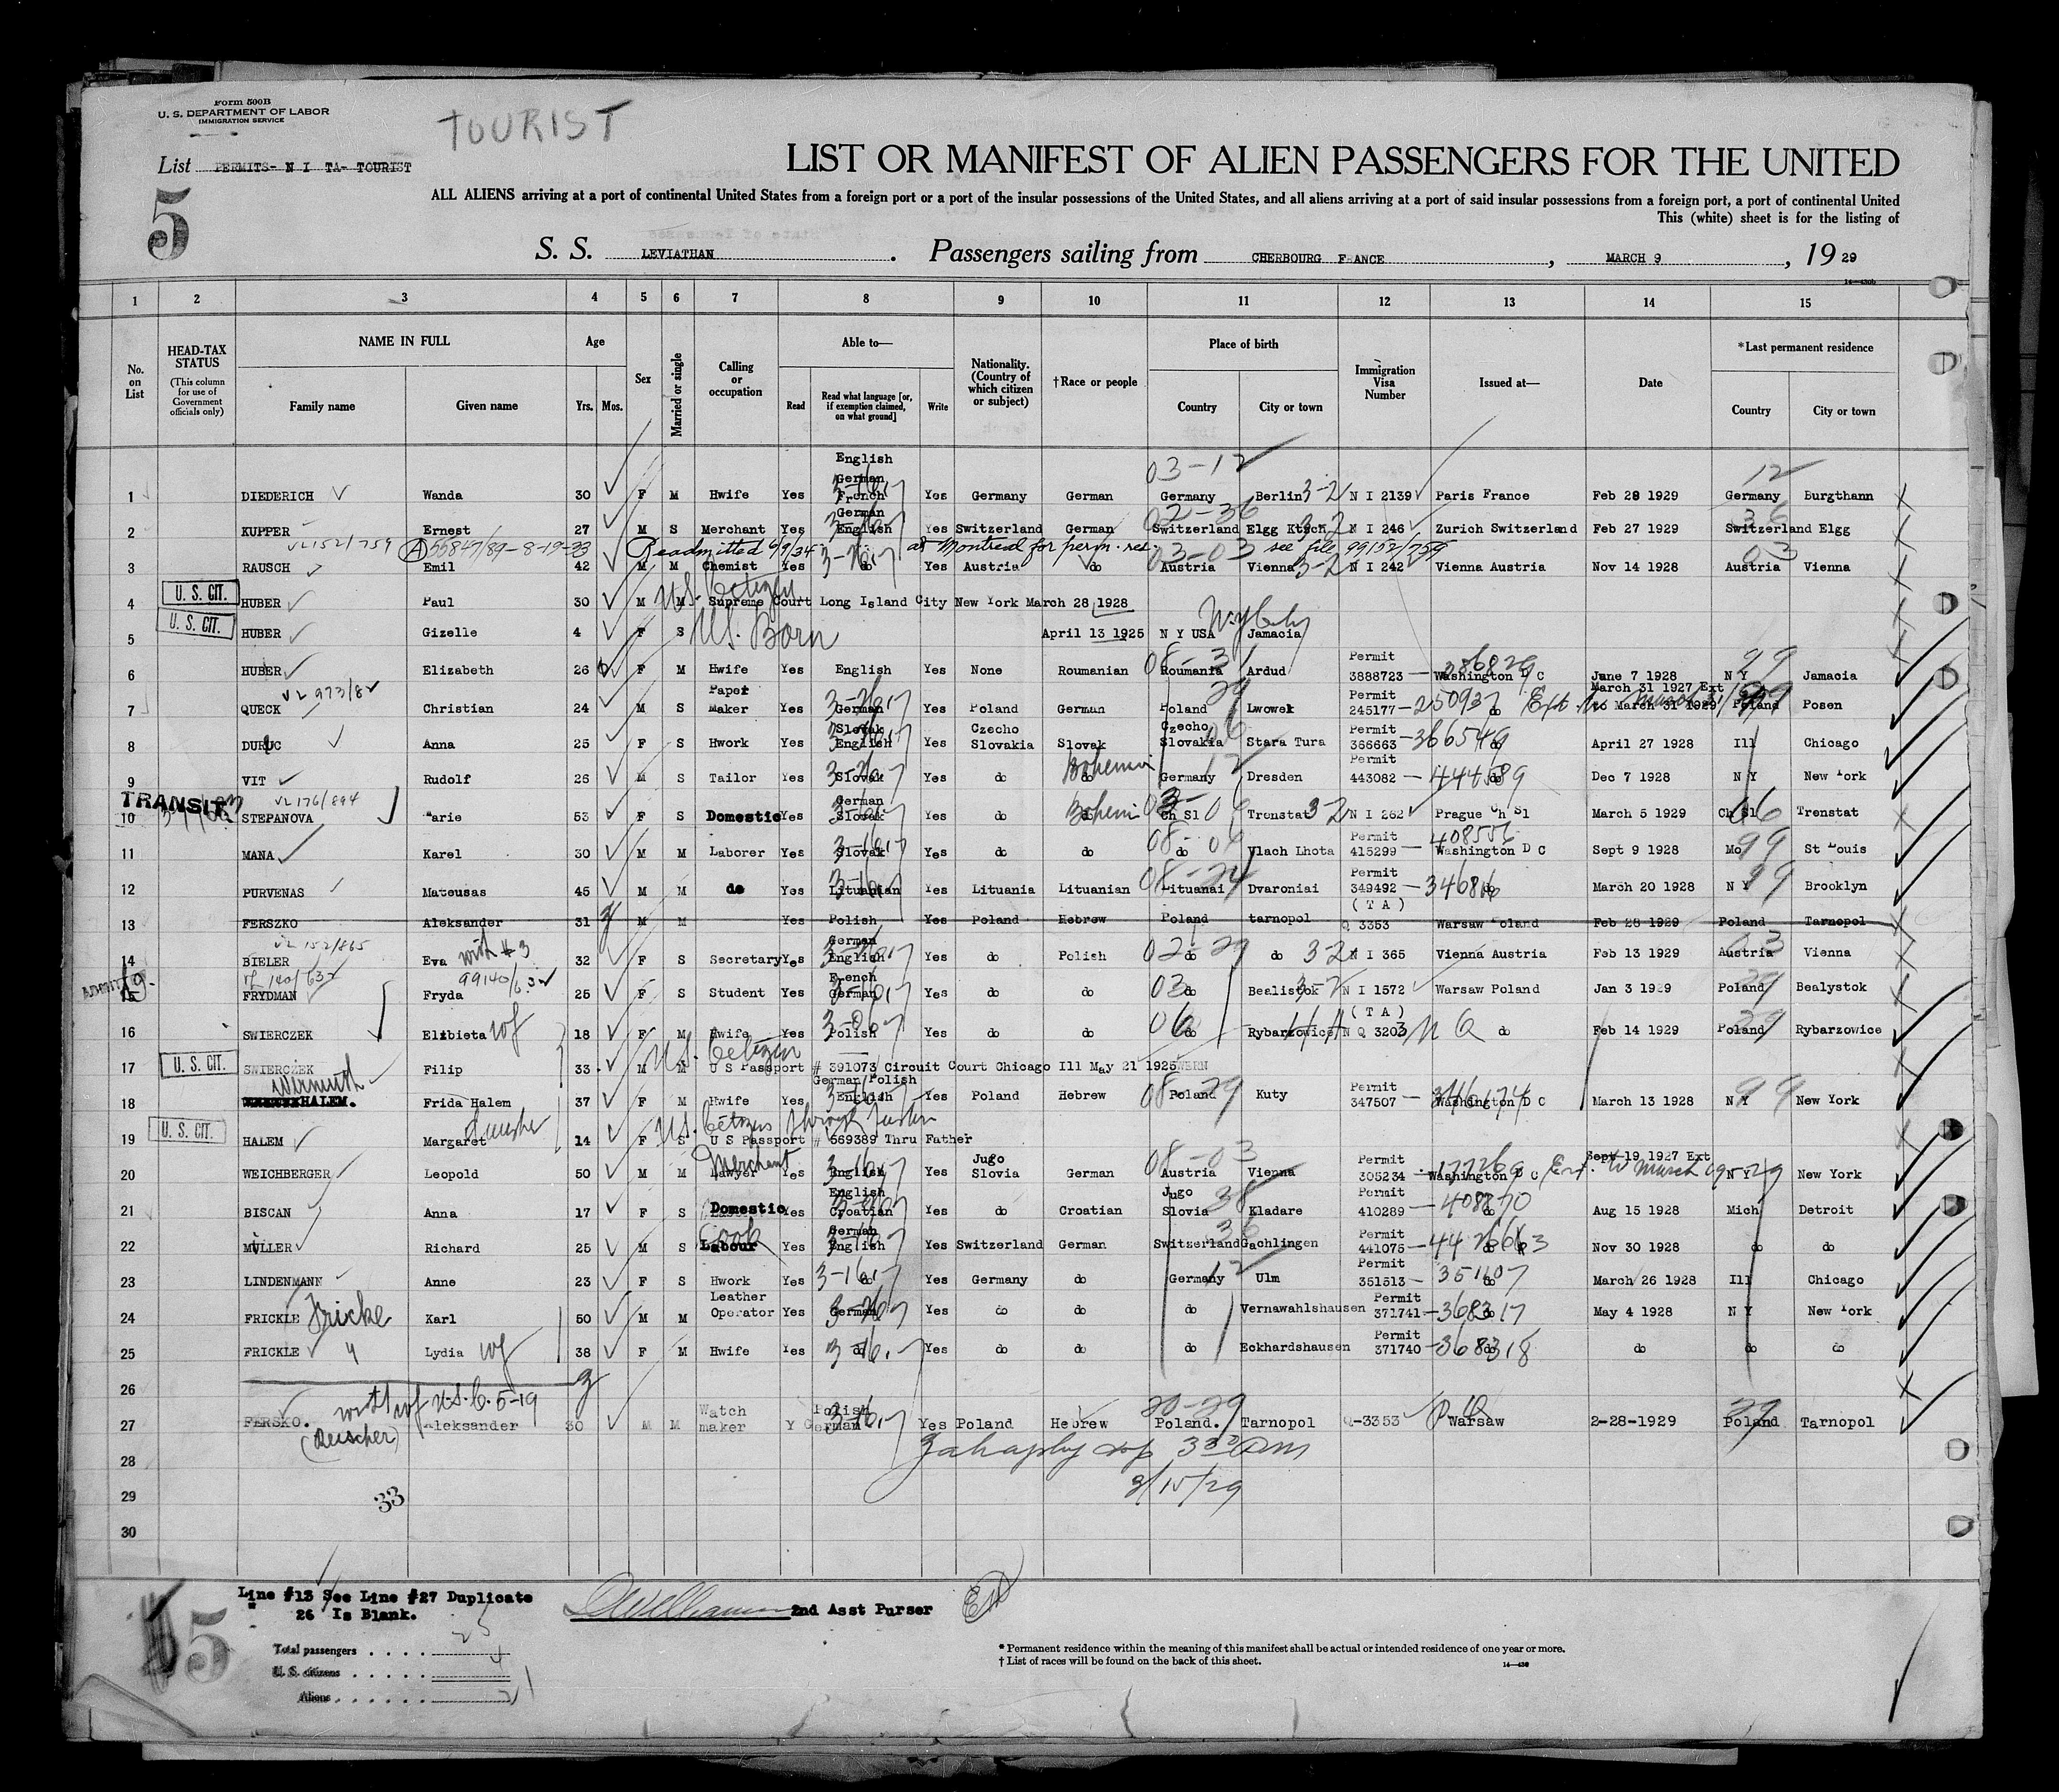 Form 500B
U. S. DEPARTMENT OF LABOR
IMMIGRATION SERVICE
TOURIST
List PERMITS- N I TA- TOURIST
5
LIST OR MANIFEST OF ALIEN PASSENGERS FOR THE UNITED
ALL ALIENS arriving at a port of continental United States from a foreign port or a port of the insular possessions of the United States, and all aliens arriving at a port of said insular possessions from a foreign port, a port of continental United
This (white) sheet is for the listing of
S. S. LEVIATHAN . Passengers sailing from CHERBOURG FRANCE , MARCH 9 , 19 29
1 2 3 4 5 6 7 8 9 10 11 12 13 14 15
No. on List
HEAD-TAX STATUS (This column for use of Government officials only)
NAME IN FULL Family name Given name
Age Yrs. Mos.
Sex
Married or single
Calling or occupation
Able to— Read Read what language [or, if exemption claimed, on what ground] Write
Nationality. (Country of which citizen or subject)
†Race or people
Place of birth Country City or town
Immigration Visa Number
Issued at—
Date
*Last permanent residence Country City or town
03-12 12
1 DIEDERICH Wanda 30 F M Hwife Yes English German French Yes Germany German Germany Berlin 3-2 N I 2139 Paris France Feb 28 1929 Germany Burgthann
02-36 36
2 KUPPER Ernest 27 M S Merchant Yes German English Yes Switzerland German Switzerland Elgg N I 246 Zurich Switzerland Feb 27 1929 Switzerland Elgg
VL 152/759 (A) 55847/89-8-19-33 Readmitted 6/9/34 at Montreal for perm. res. see file 99152/759
3 RAUSCH Emil 42 M M Chemist Yes do Yes Austria do Austria Vienna 3-2 N I 242 Vienna Austria Nov 14 1928 Austria Vienna
U. S. CIT. U.S. Citizen
4 HUBER Paul 30 M M Supreme Court Long Island City New York March 28 1928
U. S. CIT. U.S. Born
5 HUBER Gizelle 4 F S April 13 1925 N Y USA Jamacia
6 HUBER Elizabeth 26 F M Hwife Yes English Yes None Roumanian Roumania Ardud Permit 3888723 — 386829 Washington D C June 7 1928 N Y Jamacia
VL 973/82
7 QUECK Christian 24 M S Paper Maker Yes German Yes Poland German Poland Lwowek Permit 245177 — 250937 do March 31 1927 Ext to March 31 1929 Poland Posen
8 DURUC Anna 25 F S Hwork Yes Slovak English Yes Czecho Slovakia Slovak Czecho Slovakia Stara Tura Permit 366663 — 366549 do April 27 1928 Ill Chicago
9 VIT Rudolf 26 M S Tailor Yes Slovak Yes do do Bohemian Germany Dresden Permit 443082 — 444589 do Dec 7 1928 N Y New York
TRANSIT VL 176/894
10 STEPANOVA Marie 53 F S Domestic Yes German Slovak Yes do Bohemi Ch Sl Trenstat 3-2 N I 262 Prague Ch Sl March 5 1929 Ch Sl Trenstat
11 MANA Karel 30 M M Laborer Yes Slovak Yes do do do Vlach Lhota Permit 415299 — 408556 Washington D C Sept 9 1928 Mo St Louis
12 PURVENAS Matousas 45 M M do Yes Lituanian Yes Lituania Lituanian Lituanai Dvaroniai Permit 349492 — 346816 do March 20 1928 N Y Brooklyn
13 FERSZKO Aleksander 31 M M Yes Polish Yes Poland Hebrew Poland tarnopol ( T A ) Q 3353 Warsaw Poland Feb 28 1929 Poland Tarnopol
VL 152/865
14 BIELER Eva with #3 32 F S Secretary Yes German English Yes do Polish do do 3-2 N I 365 Vienna Austria Feb 13 1929 Austria Vienna
VL 140/632 99140/632
15 FRYDMAN Fryda 25 F S Student Yes French German Yes do do do Bealistok 3-2 N I 1572 Warsaw Poland Jan 3 1929 Poland Bealystok
16 SWIERCZEK Elzbieta wf 18 F M Hwife Yes Polish Yes do do do Rybarzowice ( T A ) N Q 3203 N Q do Feb 14 1929 Poland Rybarzowice
U. S. CIT. U.S. Citizen
17 SWIERCZEK Filip 33 M M U S Passport # 391073 Circuit Court Chicago Ill May 21 1925
Wermuth
18 HALEM. Frida Halem 37 F M Hwife Yes German Polish English Yes Poland Hebrew Poland Kuty Permit 347507 — 346174 Washington D C March 13 1928 N Y New York
U. S. CIT. Daughter U.S. Citizen through father
19 HALEM Margaret 14 F S U S Passport # 569389 Thru Father
Merchant
20 WEICHBERGER Leopold 50 M M Lawyer Yes English Yes Jugo Slovia German Austria Vienna Permit 305234 — 177269 Washington D C Sept 19 1927 Ext. to March 19-29 N Y New York
21 BISCAN Anna 17 F S Domestic Yes English Croatian Yes do Croatian Jugo Slovia Kladare Permit 410289 — 408270 do Aug 15 1928 Mich Detroit
Cook
22 MULLER Richard 25 M S Labour Yes German English Yes Switzerland German Switzerland Gachlingen Permit 441075 — do Nov 30 1928 do do
23 LINDENMANN Anne 23 F S Hwork Yes do Yes Germany do Germany Ulm Permit 351513 — 351107 do March 26 1928 Ill Chicago
24 FRICKLE Fricke Karl 50 M M Leather Operator Yes German Yes do do do Vernawahlshausen Permit 371741 — 368317 do May 4 1928 N Y New York
25 FRICKLE " Lydia wf 38 F M Hwife Yes do Yes do do do Eckhardshausen Permit 371740 — 368318 do do do do
26
with wf U.S.C. 5-19
27 FERSKO. Aleksander 30 M M Watch maker Y Polish German Yes Poland Hebrew Poland. Tarnopol Q-3353 Warsaw 2-28-1929 Poland Tarnopol
28
3/15/29
29
33
30
Line #13 See Line #27 Duplicate
" 26 Is Blank.
2nd Asst Purser
5
Total passengers . . . . 25
U. S. citizens . . . . . 4
Aliens . . . . . . 21
* Permanent residence within the meaning of this manifest shall be actual or intended residence of one year or more.
† List of races will be found on the back of this sheet.
14—430